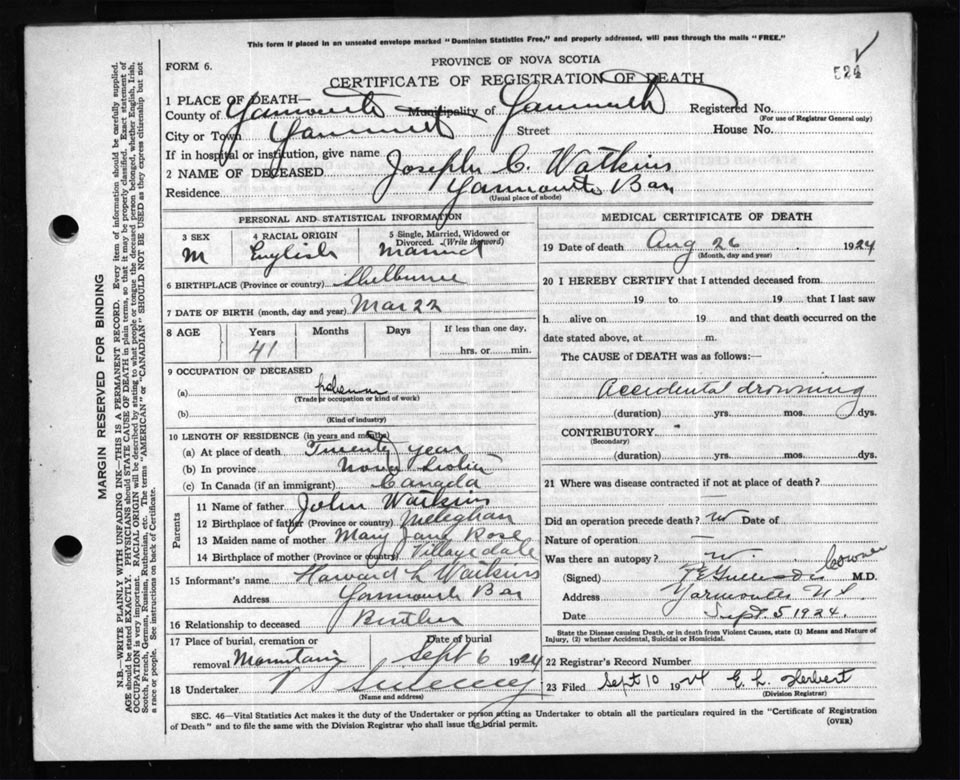 This form if placed in an unsealed envelope marked "Dominion Statistics Free," and properly addressed, will pass through the mails "FREE."
FORM 6.
PROVINCE OF NOVA SCOTIA
524
CERTIFICATE OF REGISTRATION OF DEATH
1 PLACE OF DEATH—
County of Yarmouth Municipality of Yarmouth Registered No.
(For use of Registrar General only)
City or Town Yarmouth Street House No.
If in hospital or institution, give name
2 NAME OF DECEASED Joseph C. Watkins
Residence Yarmouth Bar
(Usual place of abode)
PERSONAL AND STATISTICAL INFORMATION
3 SEX 4 RACIAL ORIGIN 5 Single, Married, Widowed or Divorced. (Write the word)
M English Married
6 BIRTHPLACE (Province or country) Shelburne
7 DATE OF BIRTH (month, day and year) Mar 22
8 AGE Years Months Days If less than one day,
41 hrs. or min.
9 OCCUPATION OF DECEASED
(a)
(Trade or occupation or kind of work)
(b)
(Kind of industry)
10 LENGTH OF RESIDENCE (in years and months)
(a) At place of death Twenty year
(b) In province Nova Scotia
(c) In Canada (if an immigrant) Canada
Parents
11 Name of father John Watkins
12 Birthplace of father (Province or country) Meteghan
13 Maiden name of mother Mary Jane Rose
14 Birthplace of mother (Province or country) Villagedale
15 Informant's name Howard L Watkins
Address Yarmouth Bar
16 Relationship to deceased Brother
17 Place of burial, cremation or removal Mountain Date of burial Sept 6 1924
18 Undertaker V S Sweeney
(Name and address)
MEDICAL CERTIFICATE OF DEATH
19 Date of death Aug 26 1924
(Month, day and year)
20 I HEREBY CERTIFY that I attended deceased from
19 to 19 that I last saw
h alive on 19 and that death occurred on the
date stated above, at m.
The CAUSE of DEATH was as follows:—
Accidental drowning
(duration) yrs. mos. dys.
CONTRIBUTORY
(Secondary)
(duration) yrs. mos. dys.
21 Where was disease contracted if not at place of death?
Did an operation precede death? Date of
Nature of operation
Was there an autopsy? Coroner
(Signed) M.D.
Address Yarmouth N.S.
Date Sept. 5 1924.
State the Disease causing Death, or in death from Violent Causes, state (1) Means and Nature of Injury, (2) whether Accidental, Suicidal or Homicidal.
22 Registrar's Record Number
23 Filed Sept 10 1924 E. L. Herbert
(Division Registrar)
SEC. 46—Vital Statistics Act makes it the duty of the Undertaker or person acting as Undertaker to obtain all the particulars required in the "Certificate of Registration
of Death" and to file the same with the Division Registrar who shall issue the burial permit.
(OVER)
MARGIN RESERVED FOR BINDING
N.B.—WRITE PLAINLY WITH UNFADING INK—THIS IS A PERMANENT RECORD. Every item of information should be carefully supplied.
AGE should be stated EXACTLY. PHYSICIANS should STATE CAUSE OF DEATH in plain terms, so that it may be properly classified. Exact statement of
OCCUPATION is very important. RACIAL ORIGIN will be described by stating to what people or tongue the deceased person belonged, whether English, Irish,
Scotch, French, German, Russian, Ruthenian, etc. The terms "AMERICAN" or "CANADIAN" SHOULD NOT BE USED as they express citizenship but not
a race or people. See instructions on back of Certificate.